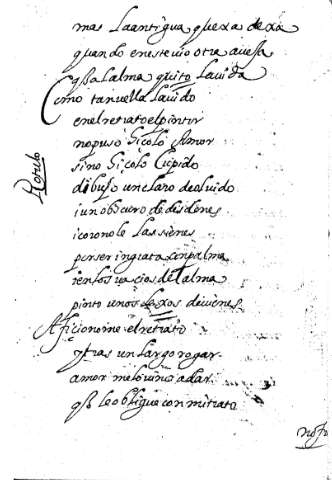 mas La antigua quexa dexa
quando en este vio otra avessa
qBa Lalma quito La vida
Como tan vella La vido
en el retrato el pintor
no puso Siçolo Amor
Rotulo
sino Siçolo Cupido
dibujo un claro de olvido
i un obscuro de desdenes
i coronole Las sienes
per ser ingrata con palma
i en los vacios del alma
pinto unos Lexos de vienes
Aficionome el retrato
y tras un Largo rogar
amor me lo vino a dar
qBo le obligue con mi trato